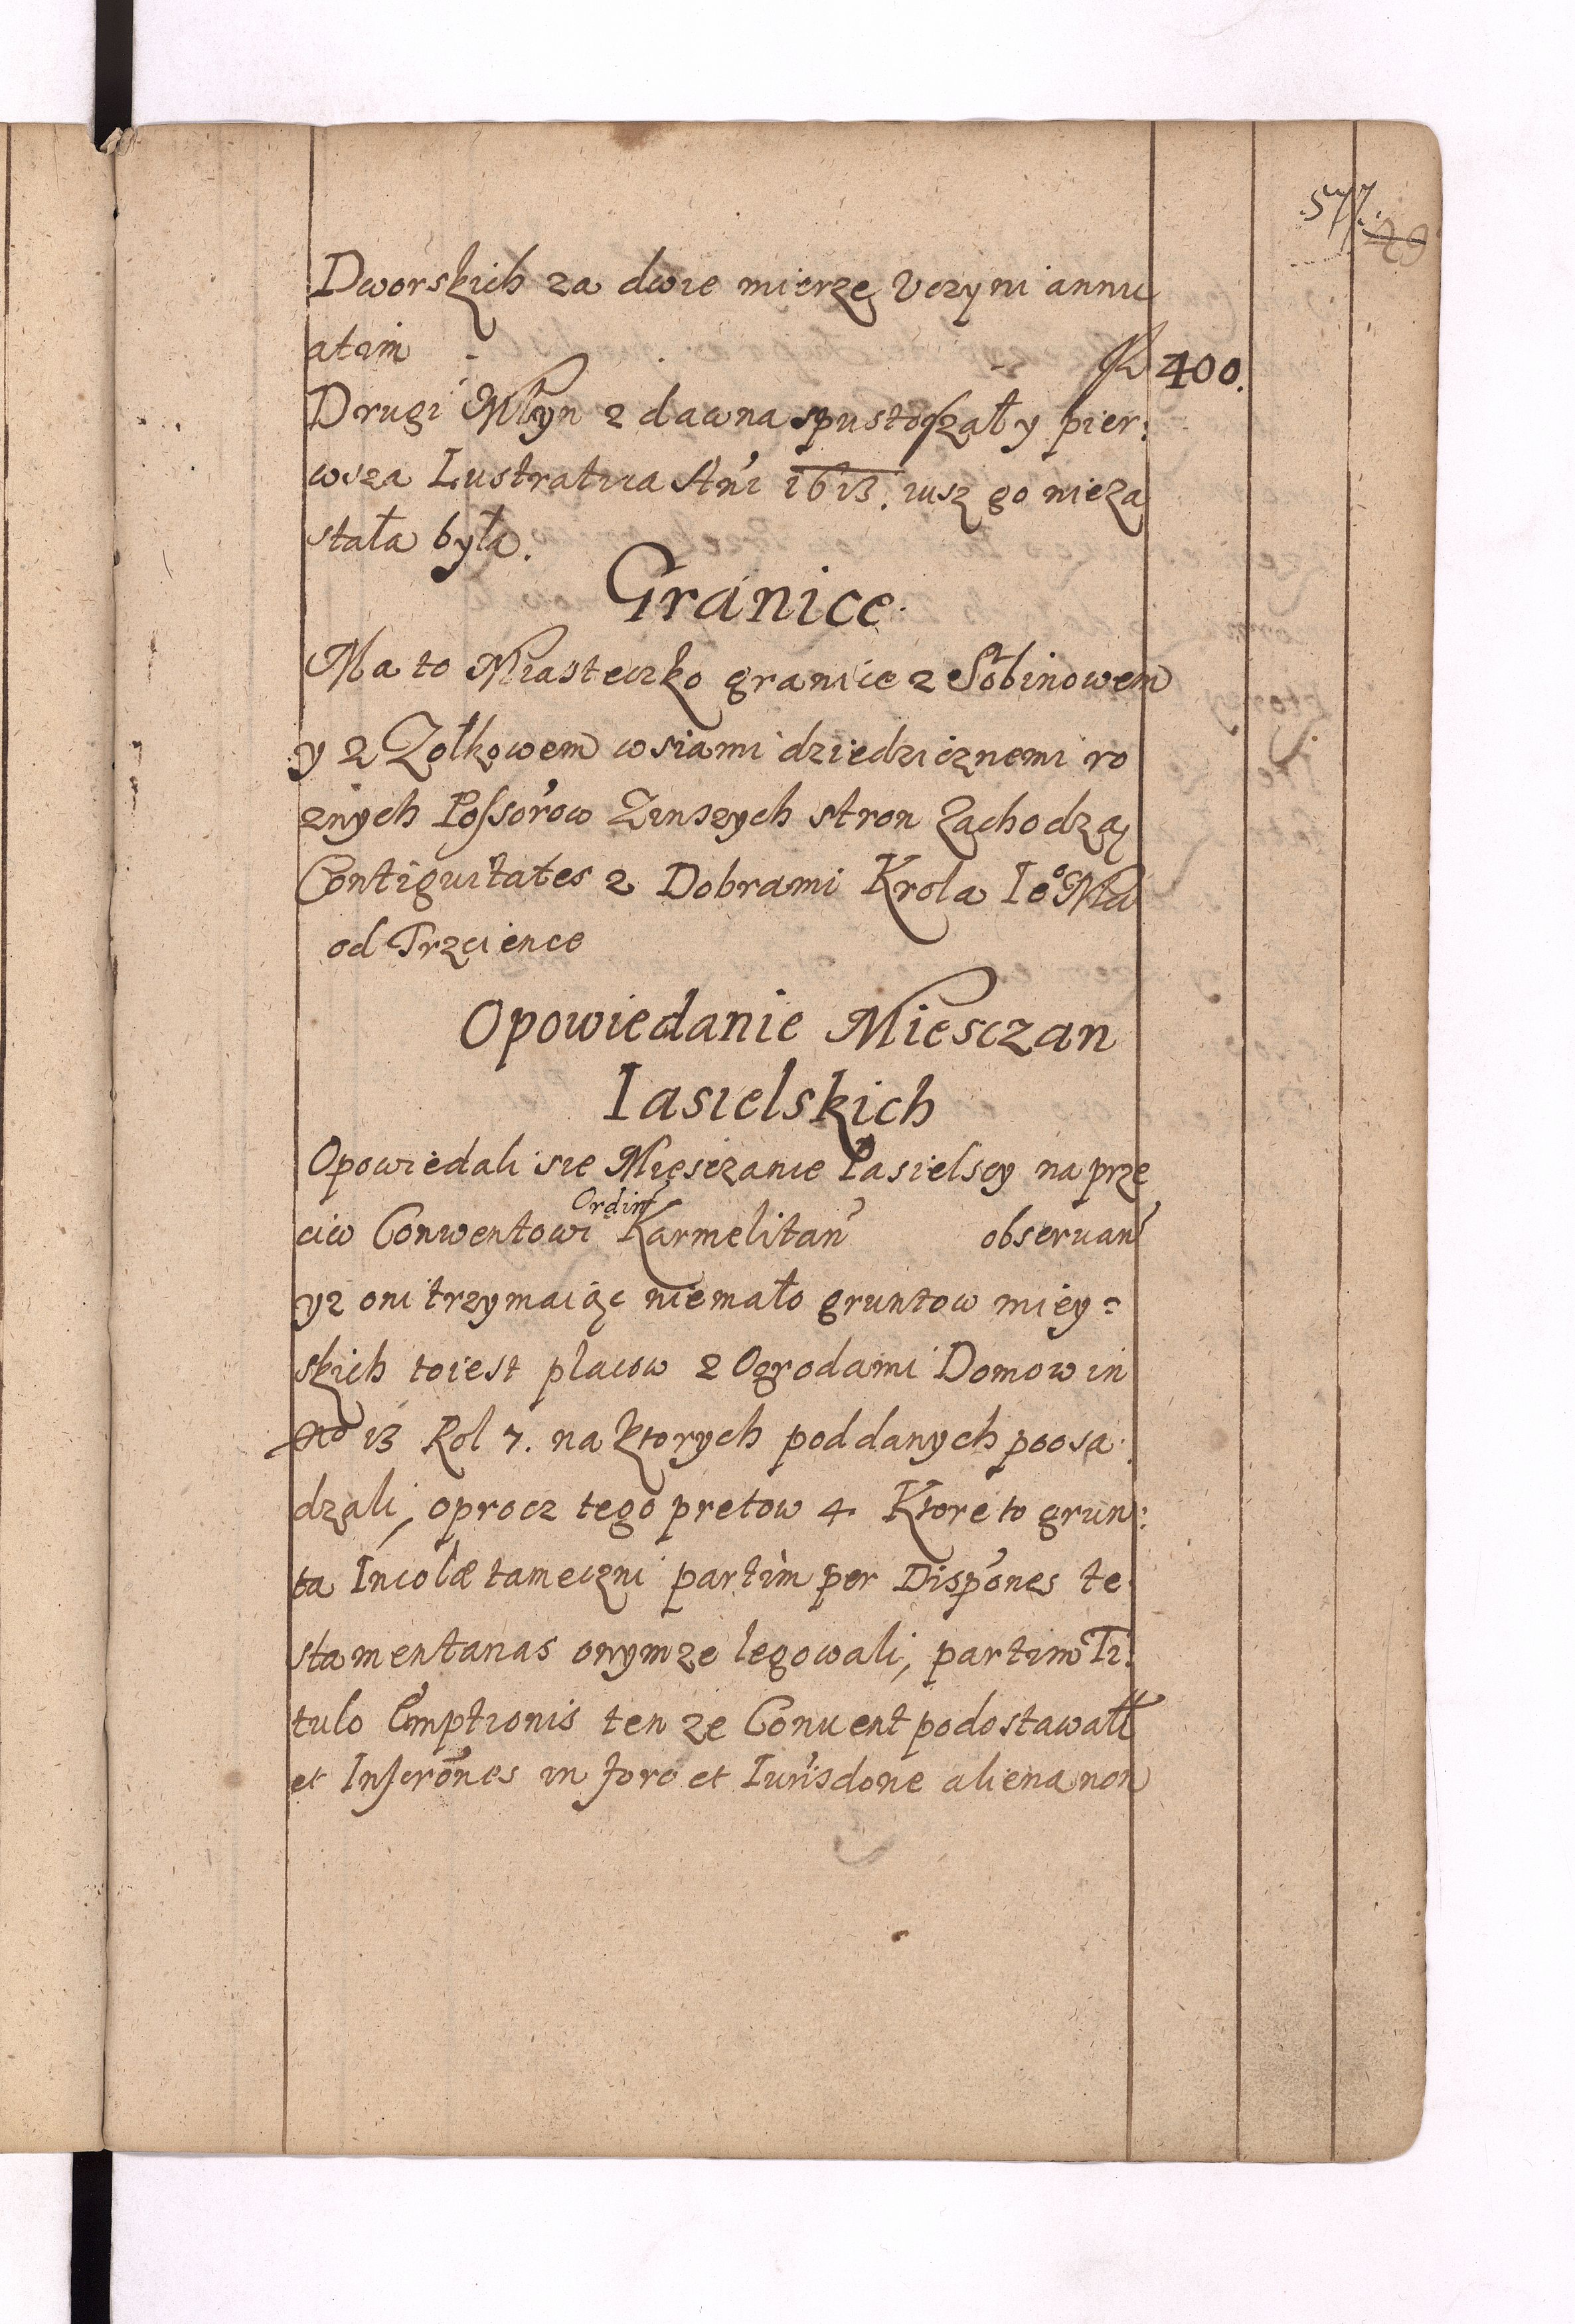 577. 29
Dworskich za dwie mierzę Uczyni annu
atim - . - fl 400.
Drugi Młyn z dawna spustoszały pier:
wsza Lustratia An̄i 1613. iusz go nieza
stała była.
Granice.
Ma to Miasteczko granice z Sobinowem
y z Zołkowem wsiami dziedzicznemi ro
znych Possorow Zinszych stron Zachodzą
Contiguitates z Dobrami Krola Ieo Mci
od Trzcience
Opowiedanie Miesczan
Iasielskich
Opowiedali sie Miesczanie Iasielscy na prze
ciw Conwentowi Ordin̄ Karmelitan̄ observan̄
yz oni trzymaiąc niemało gruntow miey=
skich toiest placow z Ogrodami Domow in
No 13 Rol 7. na ktorych poddanych poosa:
dzali, oprocz tego pretow 4. Ktore to grun:
ta Incolæ tameczni partim per Disp̄ones te
stamentanas onymze legowali, partim Ti:
tulo Emptionis ten ze Convent podostawał
et Inscrōnes in foro et Iurisdone aliena non